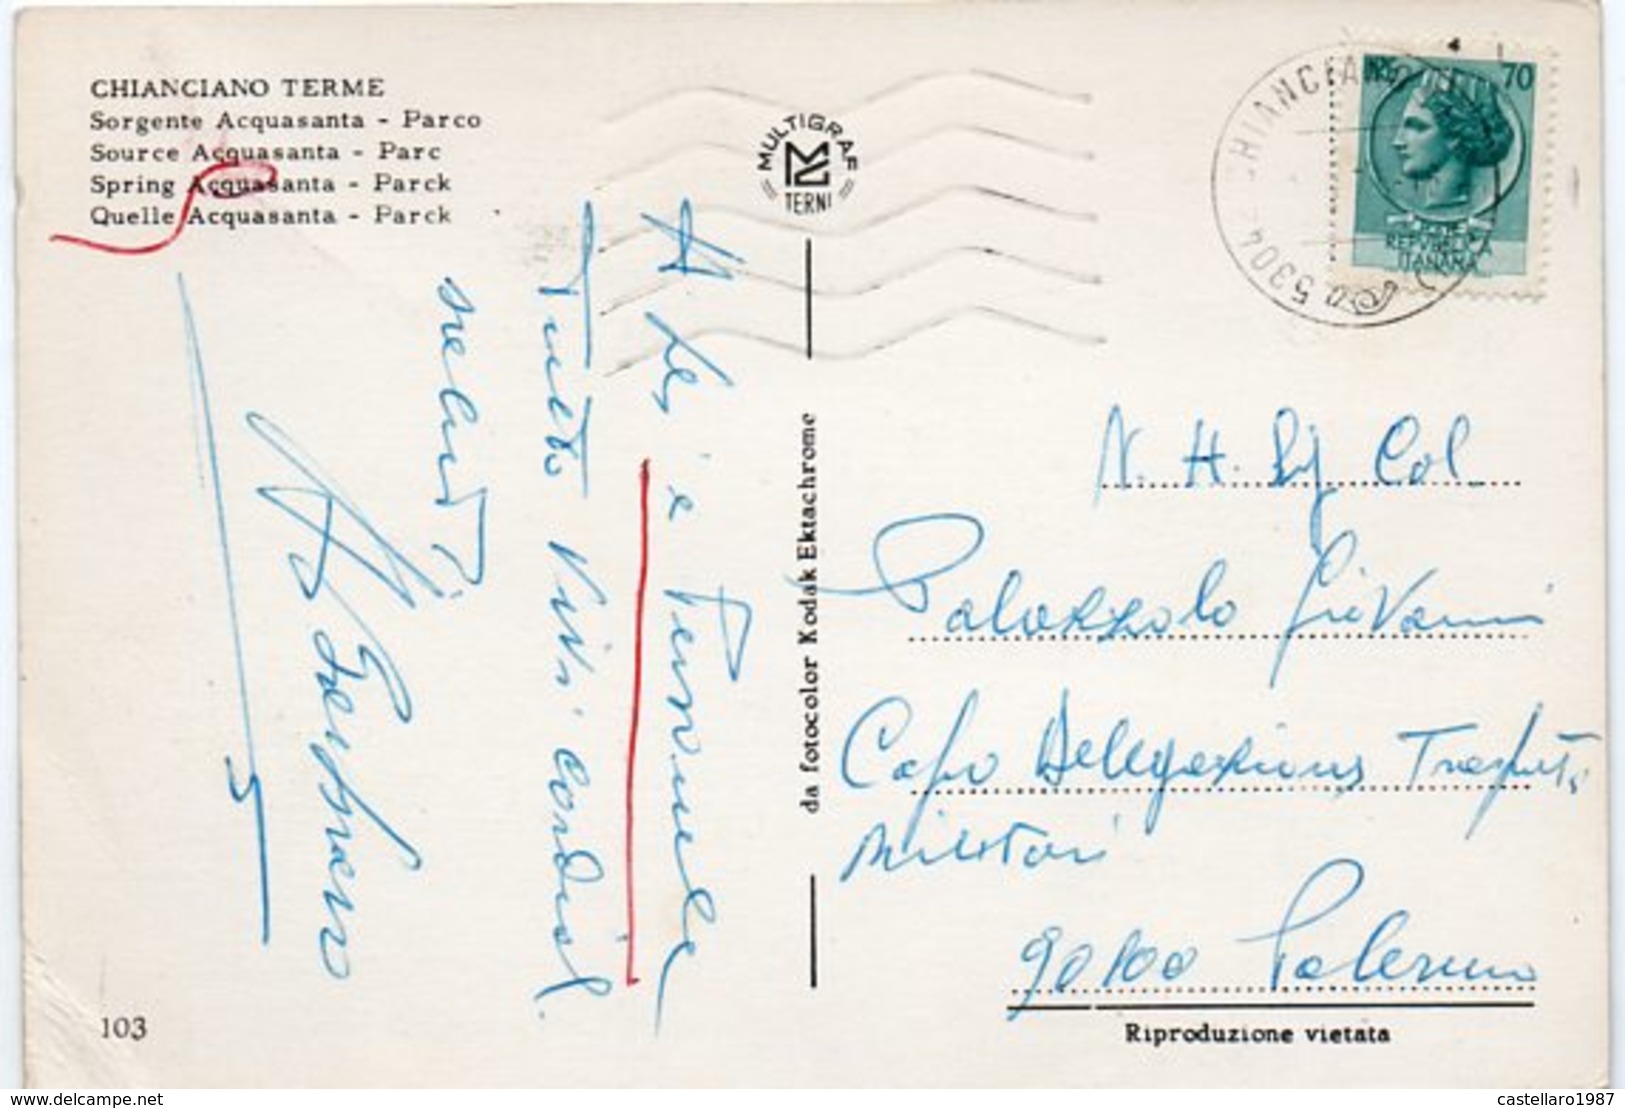 CHIANCIANO TERME
Sorgente Acquasanta - Parco
Source Acquasanta - Parc
Spring Acquasanta - Parck
Quelle Acquasanta - Parck
A Lei e
Tutto Vivi cordiali
saluti
103
MULTIGRAF
TERNI
da fotocolor Kodak Ektachrome
70
REPVBBLICA
ITALIANA
53042 CHIANCIANO
N. H. Col.
Palazzolo Giovanni
Capo Delegazione Trasporti
Militari
90100 Palermo
Riproduzione vietata
delcampe.net
castellaro1987